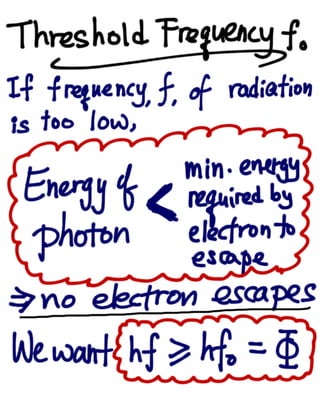 Threshold Frequency f₀
If frequency, f, of radiation
is too low,
Energy of photon < min. energy required by electron to escape
⇒ no electron escapes
We want hf ⩾ hf₀ = Φ